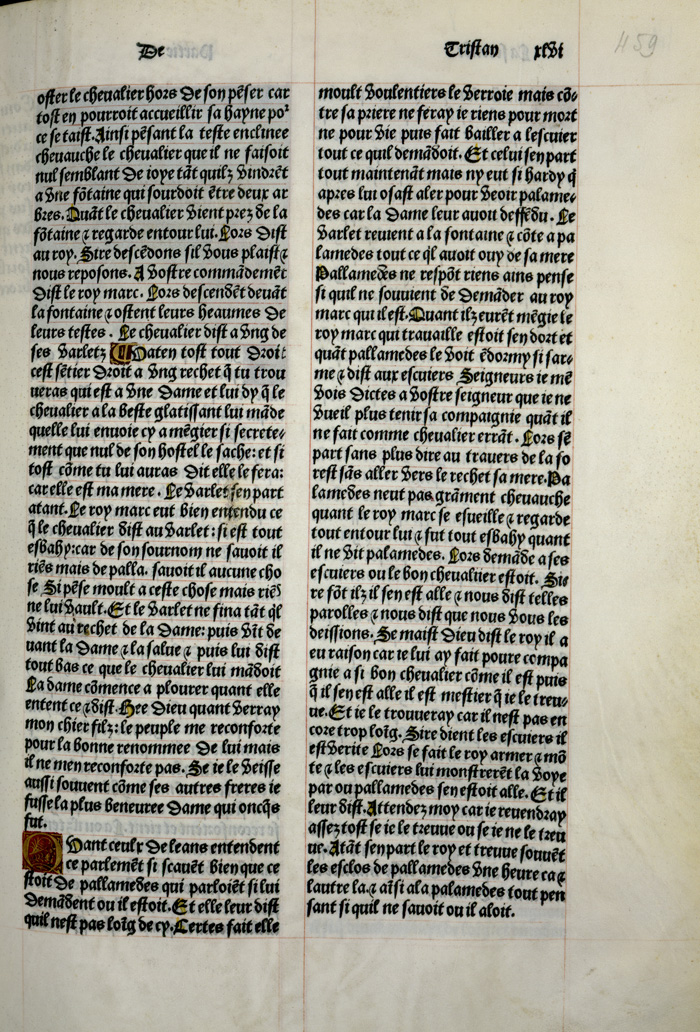 De
Tristan xlvi
459
oster le chevalier hors de son pẽser car
tost en pourroit accueillir sa hayne po²
ce se taist. Ainsi pẽsant la teste enclinee
cheuauche le chevalier que il ne faisoit
nul semblant de ioye tãt quilz vindrẽt
a vne fõtaine qui sourdoit ẽtre deux ar
bres. Quãt le chevalier vient prez de la
fõtaine ⁊ regarde entour lui. Lors dist
au roy. Sire descẽdons sil vous plaist ⁊
nous reposons. A vostre commãdemẽt
dist le roy marc. Lors descendẽt deuãt
la fontaine ⁊ ostent leurs heaumes de
leurs testes. Le chevalier dist a vng de
ses varletz Vaten tost tout droit
cest sẽtier droit a vng rechet q̃ tu trou
ueras qui est a vne dame et lui dy q̃ le
chevalier a la beste glatissant lui mãde
quelle lui enuoie cy a mẽgier si secrete⸗
ment que nul de son hostel le sache: et si
tost cõme tu lui auras dit elle le fera:
car elle est ma mere. Le varlet sen part
atant. Le roy marc eut bien entendu ce
q̃ le chevalier dist au varlet: si est tout
esbahy: car de son sournom ne sauoit il
riẽs mais de palla. sauoit il aucune cho
se Si pẽse moult a ceste chose mais riẽs
ne lui vault. Et le varlet ne fina tãt ql̃
vint au rechet de la dame: puis vĩt de
uant la dame ⁊ la salue ⁊ puis lui dist
tout bas ce que le chevalier lui mãdoit
La dame cõmence a plourer quant elle
entent ce ⁊ dist. Hee dieu quant verray
mon chier filz: le peuple me reconforte
pour la bonne renommee de lui mais
il ne men reconforte pas. Se ie le veisse
aussi souuent cõme ses autres freres ie
fusse la plus beneuree dame qui oncq̃s
fut.
Quant ceulx de leans entendent
ce parlemẽt si scauẽt bien que ce
stoit de pallamedes qui parloiẽt si lui
demãdent ou il estoit. Et elle leur dist
quil nest pas loĩg de cy. Certes fait elle
moult voulentiers le verroie mais cõ⸗
tre sa priere ne feray ie riens pour mort
ne pour vie puis fait bailler a lescuier
tout ce quil demãdoit. Et celui sen part
tout maintenãt mais ny eut si hardy q̃
apres lui osast aler pour veoir palame⸗
des car la dame leur auoit deffẽdu. Le
varlet reuient a la fontaine ⁊ cõte a pa
lamedes tout ce ql̃ auoit ouy de sa mere
Pallamedes ne respõt riens ains pense
si quil ne souuient de demãder au roy
marc qui il est. Quant ilz eurẽt mẽgie le
roy marc qui trauaille estoit sen dort et
quãt pallamedes le voit ẽdormy si sar⸗
me ⁊ dist aux escuiers Seigneurs ie mẽ
vois dictes a vostre seigneur que ie ne
vueil plus tenir sa compaignie quãt il
ne fait comme chevalier errãt. Lors sẽ
part sans plus dire au trauers de la fo
rest sãs aller vers le rechet sa mere. Pa
lamedes neut pas grãment cheuauche
quant le roy marc se esueille ⁊ regarde
tout entour lui ⁊ fut tout esbahy quant
il ne vit palamedes. Lors demãde a ses
escuiers ou le bon chevalier estoit. Si⸗
re fõt ilz il sen est alle ⁊ nous dist telles
parolles ⁊ nous dist que nous vous les
deissions. Se maist dieu dist le roy il a
eu raison car ie lui ay fait poure compa
gnie a si bon chevalier cõme il est puis
q̃ il sen est alle il est mestier q̃ ie le treu⸗
ue. Et ie le trouueray car il nest pas en
core trop loĩg. Sire dient les escuiers il
est verite Lors se fait le roy armer ⁊ mõ
te ⁊ les escuiers lui monstrerẽt la voye
par ou pallamedes sen estoit alle. Et il
leur dist. Attendez moy car ie reuendray
assez tost se ie le treuue ou se ie ne le treu
ue. Atãt sen part le roy et treuue souuẽt
les esclos de pallamedes vne heure ca ⁊
lautre la. ⁊ aĩsi ala palamedes tout pen
sant si quil ne sauoit ou il aloit.